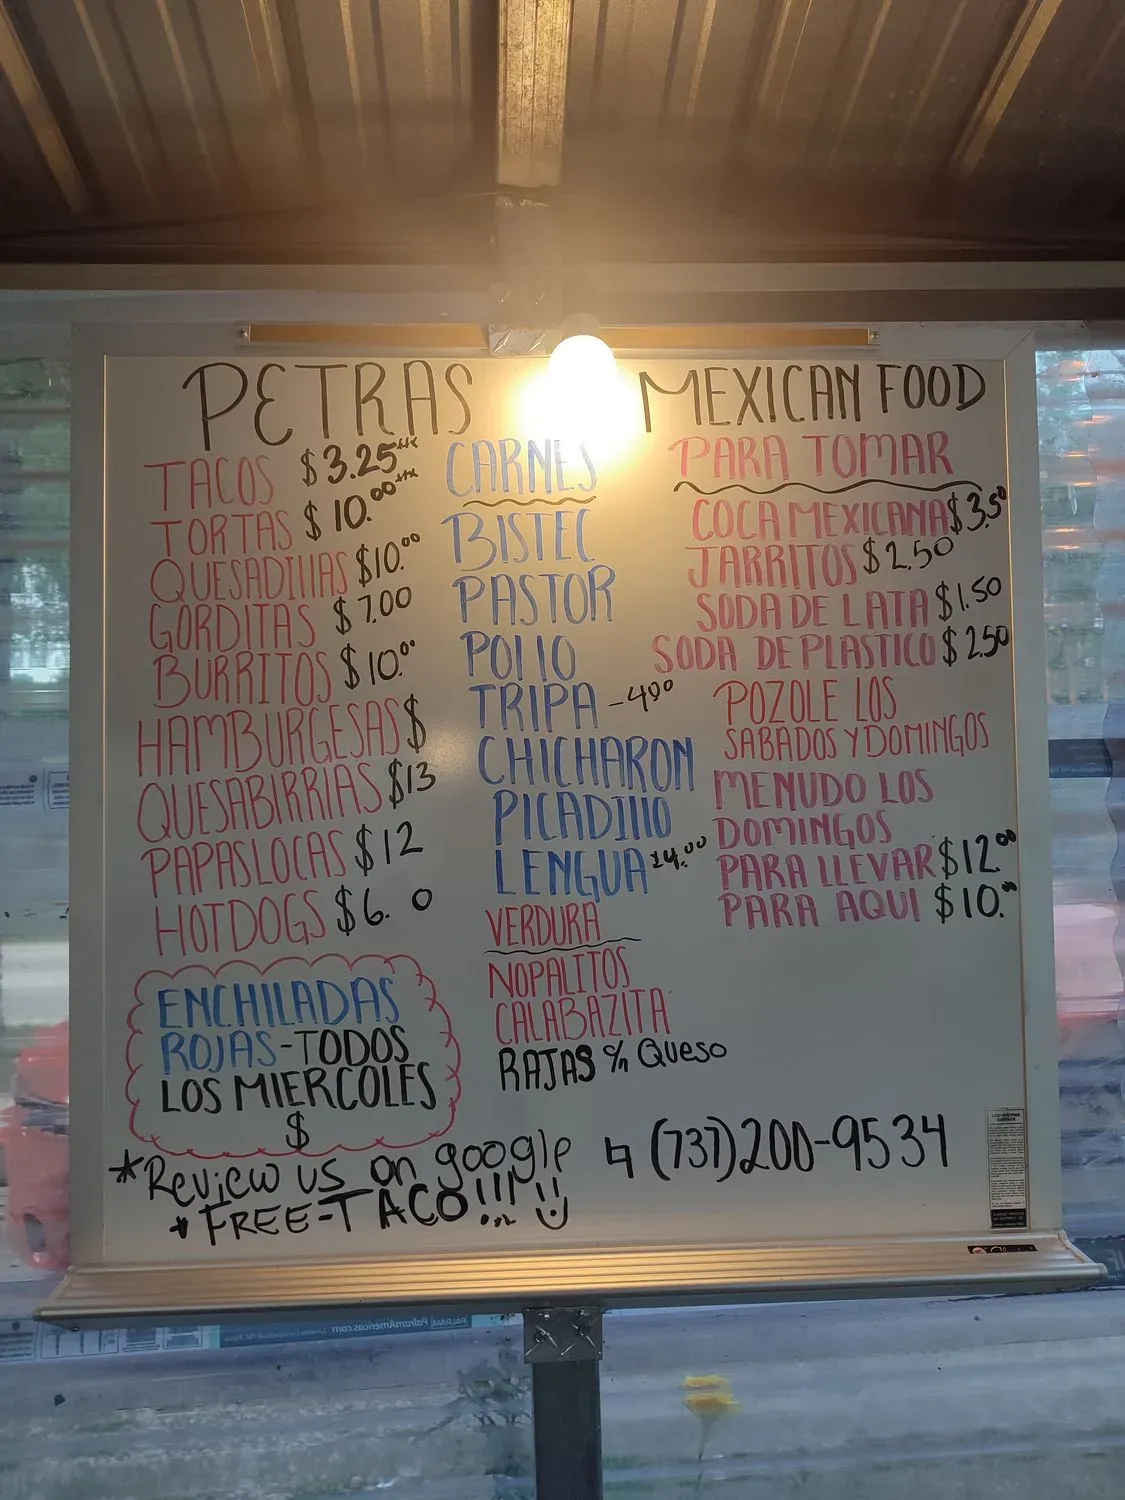 PETRAS MEXICAN FOOD
TACOS $3.25***
TORTAS $10.00***
QUESADIllAS $10.00
GORDITAS $7.00
BURRITOS $10.00
HAMBURGESAS $
QUESABIRRIAS $13
PAPASLOCAS $12
HOTDOGS $6. 0
ENCHILADAS
ROJAS-TODOS
LOS MIERCOLES
$
CARNES
BISTEC
PASTOR
POllO
TRIPA -400
CHICHARON
PICADIllO
LENGUA 14.00
VERDURA
NOPALITOS
CALABAZITA
RAJAS %n Queso
PARA TOMAR
COCA MEXICANA $3.50
JARRITOS $2.50
SODA DE LATA $1.50
SODA DE PLASTICO $2.50
POZOLE LOS
SABADOS Y DOMINGOS
MENUDO LOS
DOMINGOS
PARA LLEVAR $12.00
PARA AQUI $10.00
*Review us on google (737)200-9534
* FREE-TACO!!!!!